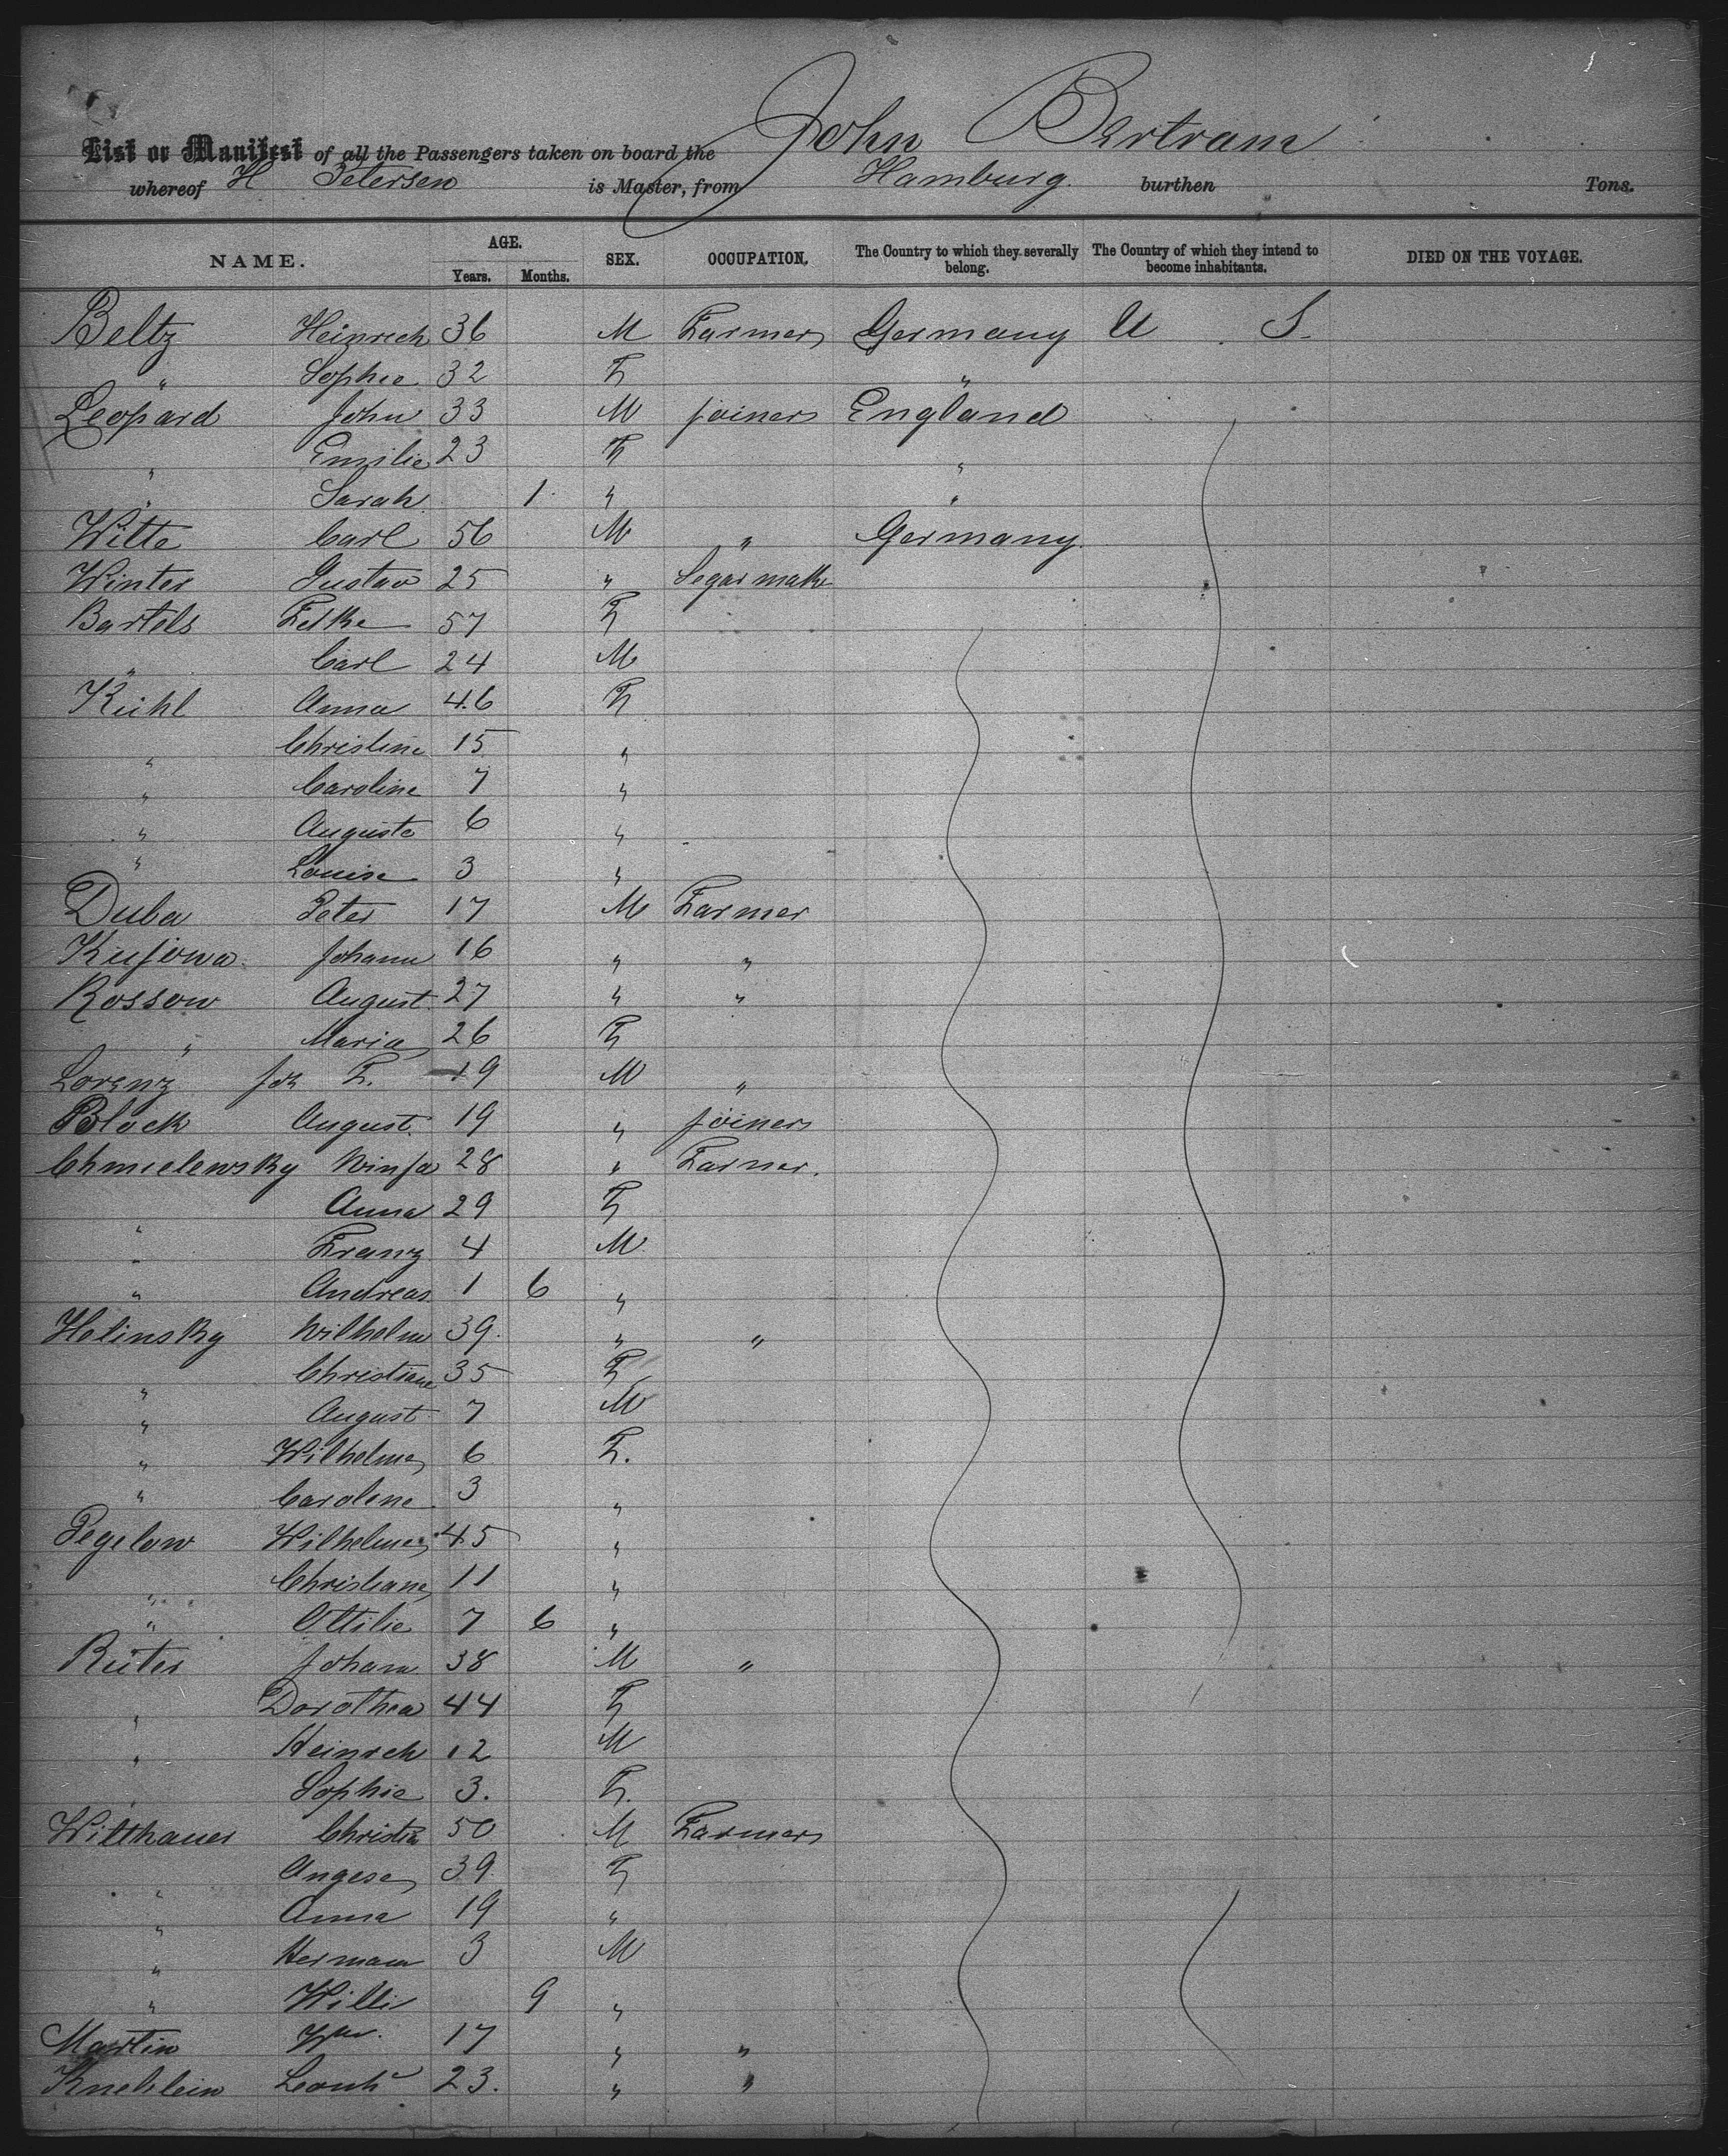 List or Manifest of all the Passengers taken on board the John Bertram
whereof H Petersen is Master, from Hamburg. burthen Tons.
NAME. AGE. Years. Months. SEX. OCCUPATION. The Country to which they severally belong. The Country of which they intend to become inhabitants. DIED ON THE VOYAGE.
Beltz Heinrich 36 M Farmer Germany U S.
" Sophie 32 F "
Leopard John 33 M joiner England
" Emilie 23 F "
" Sarah 1 " "
Witte Carl 56 M " Germany
Winter Gustav 25 " Segar make
Bartels 57 F
" Carl 24 M
Kühl Anna 46 F
" Christine 15 "
" Caroline 7 "
" Auguste 6 "
" Louise 3 "
Duba Peter 17 M Farmer
Kujowa Johann 16 " "
Rossow August 27 " "
" Maria 26 F
Lorenz Joh F. 19 M "
Block August 19 " joiner
Chmielewsky 28 " Farmer.
" Anna 29 F
" Franz 4 M
" Andreas 1 6 "
Helinsky Wilhelm 39 " "
" Christiane 35 F
" August 7 M
" Wilhelme 6 F.
" Caroline 3 "
Pegelow Wilhelme 45 "
" Christiane 11 "
" Ottilie 7 6 "
Rüter Johann 38 M "
" Dorothea 44 F
" Heinrich 12 M
" Sophie 3. F.
Witthauer Christia 50 M Farmer
" 39 F
" Anna 19 "
" Hermann 3 M
" Willi 9 "
Martin Wm. 17 " "
Knehlein Leonhd 23. " "